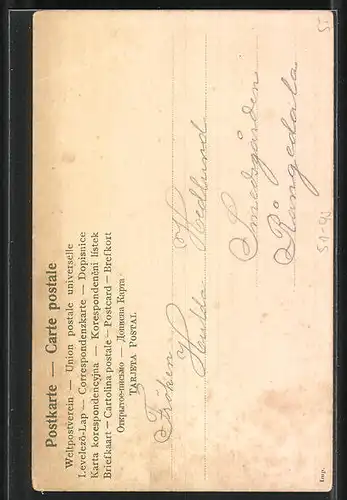 Postkarte — Carte postale
Weltpostverein — Union postale universelle
Levelező-Lap — Correspondenzkarte — Dopisnice
Karta korespondencyjna — Korespondenční lístek
Briefkaart — Cartolina postale — Postcard — Brefkort
Открытое письмо — Дописна Карта
TARJETA POSTAL
Fröken
Hulda Hedlund
Smedsgården
Rångedala
51-90
Imp.